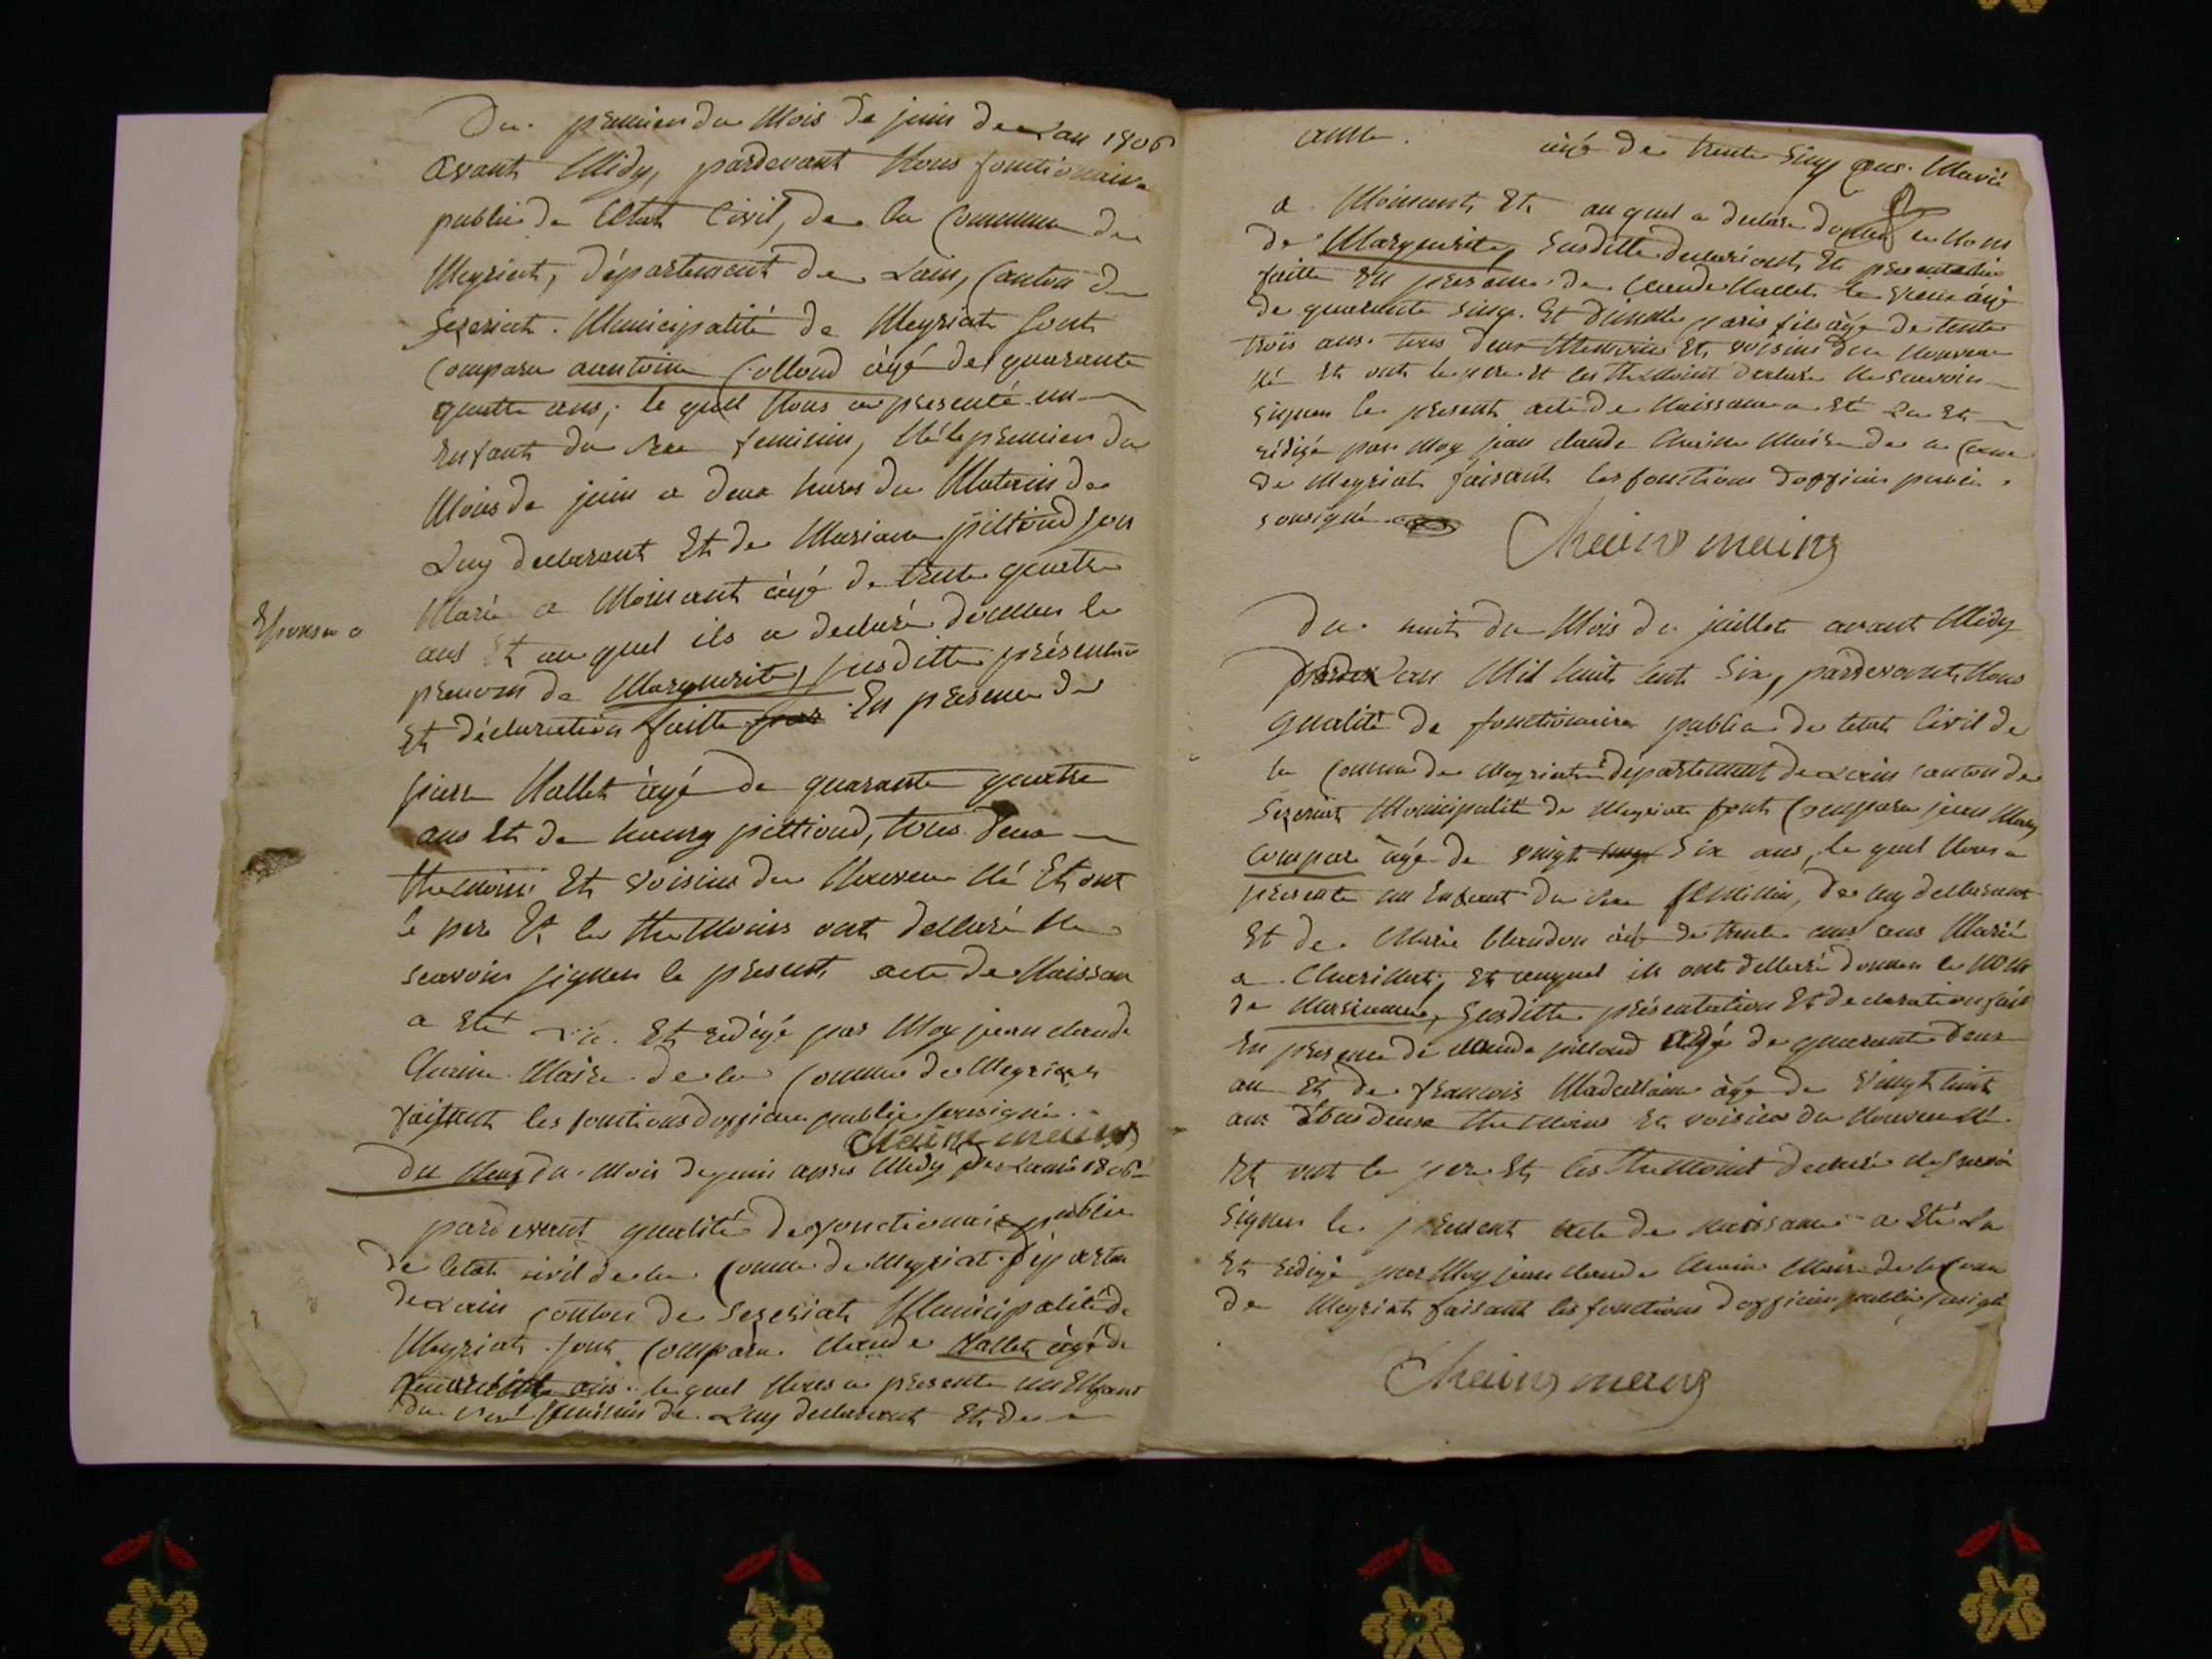 Du premier du Mois de juin de Lan 1806
avant Midy, pardevant Nous fonctionaire
public de Letat Civil, de la Commune de
Meyriat, département de Lain, Canton de
Sezeriat. Municipalité de Meyriat sont
Comparu aantoine Colloud âgé de quarante
quatre ans, le quel Nous a presenté un
Enfant du sexe feminin, Né le premier du
Mois de juin a deux heures du Matin de
Luy declarant Et de Mariane pilliond son
Epouse a Marié a Moinant âgé de trente quatre
ans Et au quel ils a declaré donner le
prenom de Marguerite, susditte présentation
Et déclaration faitte par En presence de
pierre Nallet âgé de quarante quatre
ans Et de pittioud, tous deux
themoins Et voisins du Nouveau Né Et ont
le pere Et les themoins ont declaré Ne
scavoir signer le present acte de Naissance
a Eté Lu Et redigé par Moy jean claude
Chaine Maire de la Commune de Meyriat
faisant les fonctions dofficier public sousigné
Chaine maire
du Neuf du Mois de juin apres Midy de Lané 1806
pardevant qualité de fonctionaire public
de letat civil de la Comune de Meyriat departem
de Lain Conton de Sezeriat Municipalité de
Meyriat sont Comparu claude Nallet âgé de
ans le quel Nous a presenté un Enfant
du sexe feminin de Luy declarant Et de
âgé de trente Sinq ans Marié
a Moinant Et au quel a declaré donner le Nom
de Marguerite, susditte declariont Et presentation
faitte En presence de Claude Nallet le vieux âgé
de quarante sinq. Et paris fils âgé de trente
trois ans tous deux themoins Et voisins du Nouveau
Né Et ont le pere Et les themoins declaré Ne scavoir
signer le present acte de Naissance a Eté Lu Et
rédigé par Moy jean claude Chaine Maire de la Comune
de Meyriat faisant les fonctions dofficier public
sousigné
Chaine maire
Du huit du Mois de juillet avant Midy
Lan Mil huit Cent Six, pardevant Nous
qualité de fonctionaire public de letat Civil de
la Commune de Meyriat département de Lain canton de
Sezeriat Municipalité de Meyriat sont Comparu jean Mary
Compar âgé de vingt Six ans, le quel Nous a
presenté un Enfant du sexe feminin, de luy declarant
Et de Marie âgé de trente ans Marié
a Et auquel ils ont declaré donner le Nom
de Marianne, susditte présentation Et declaration fait
En presence de claude pilloud âgé de quarante deux
an Et de francois âgé de Vingt huit
ans tous deux themoins Et voisins du Nouveau Né.
Et ont le pere Et les themoins declaré Ne scavoir
Signer le present acte de naissance a Eté Lu
Et redigé par Moy jean claude Chaine Maire de la Comune
de Meyriat faisant les fonctions dofficier public sousigné
Chaine maire